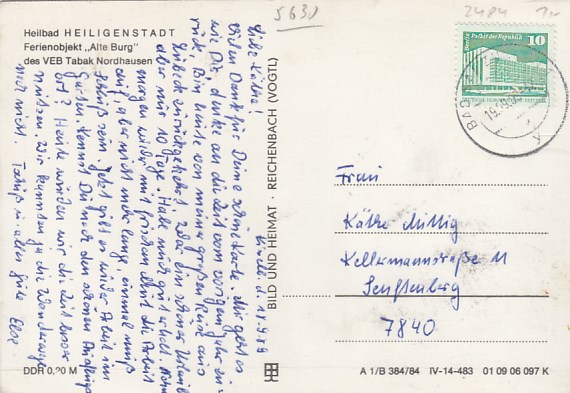 5630
2484
Heilbad HEILIGENSTADT
Ferienobjekt „Alte Burg"
des VEB Tabak Nordhausen
Palast der Republik
10
DDR
BAD
19.9.
Liebe Käthe!
Vielen Dank für Deine schöne Karte. Mir geht es
wie Dir, denke an die Zeit vom vorigen Jahr zu-
rück. Bin heute von meiner großen Reise aus
Lübeck zurückgekehrt. War ein schöner Urlaub
aber nur 10 Tage. Habe mich gut erholt.
morgen wird mit frischem Mut die Arbeit
aber nicht mehr lange, einmal muß
Schluß sein. Jetzt gibt es wieder Arbeit im
Garten. Kennst Du noch den schönen
Heute würden wir die Zeit besser
nützen. Wir kannten ja die
noch nicht. Tschüß u. alles Gute Elsa
d. 17.9.89
BILD UND HEIMAT · REICHENBACH (VOGTL)
Frau
Käthe Mittig
Kellermannstraße 11
Senftenberg
7840
DDR 0,20 M
A 1/B 384/84 IV-14-483 01 09 06 097 K